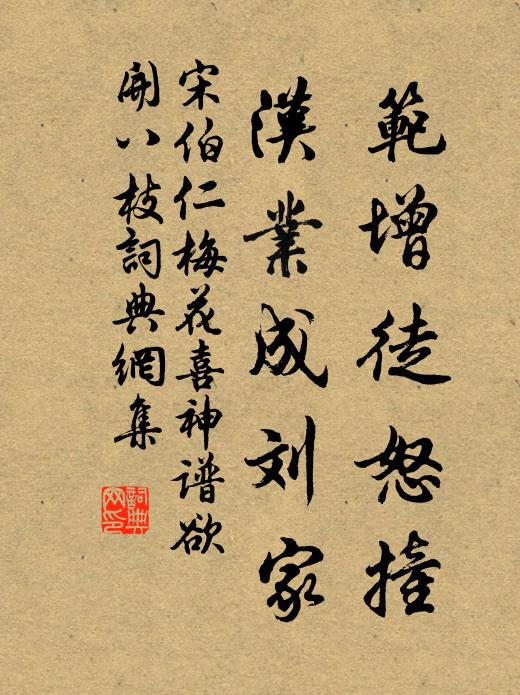 範增徒怒撞
漢業成刘家
宋伯仁梅花喜神譜欲
開八枝詞典網集
詞典
网印